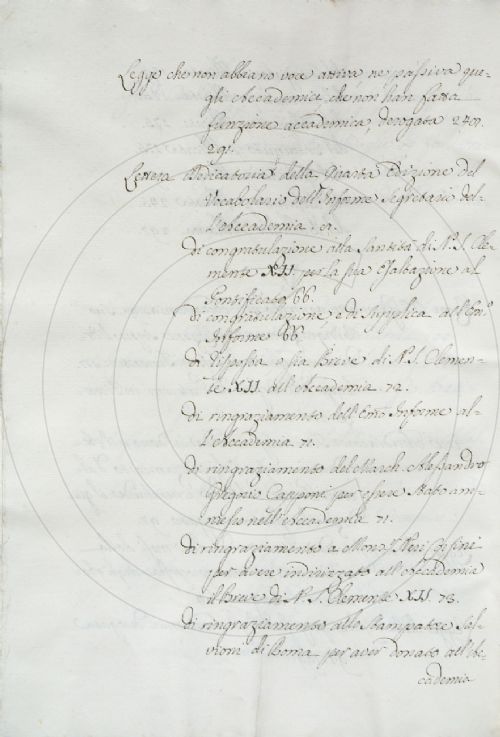 Legge che non abbiano voce attiva ne passiva que-
gli Accademici, che non han fatta
funzione accademica, derogata 240.
291.
Lettera Dedicatoria della Quarta Edizione del
Vocabolario dell'Informe Segretario del-
l'Accademia.
di congratulazione alla Santità di N. S. Cle-
mente XII per la sua Esaltazione al
Pontificato 66.
di congratulazione e di supplica all'Em.o
Informe 66.
di risposta a sia Breve di N. S. Clemen-
te XII all'Accademia 72.
di ringraziamento dell'Emo Informe al-
l'Accademia 71.
di ringraziamento del March. Alessandro
Gregorio Capponi per essere stato am-
messo nell'Accademia 71.
di ringraziamento a Mons. Neri Corsini
per avere indirizzato all'Accademia
il Breve di N. S. Clemente XII 73.
di ringraziamento allo Stampatore Sal-
vioni di Roma per aver donato all'Ac-
cademia